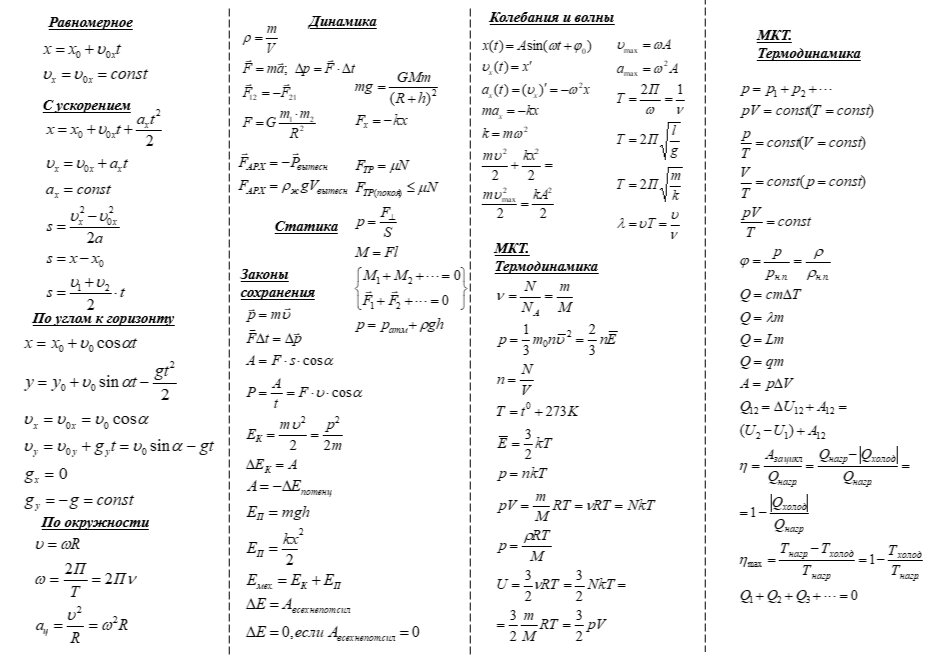 Равномерное
x = x₀ + υ₀ₓt
υₓ = υ₀ₓ = const
С ускорением
x = x₀ + υ₀ₓt + aₓt²/2
υₓ = υ₀ₓ + aₓt
aₓ = const
s = (υₓ² − υ₀ₓ²)/2a
s = x − x₀
s = (υ₁ + υ₂)/2 · t
По углом к горизонту
x = x₀ + υ₀ cos αt
y = y₀ + υ₀ sin αt − gt²/2
υₓ = υ₀ₓ = υ₀ cos α
υ_y = υ₀_y + g_y t = υ₀ sin α − gt
gₓ = 0
g_y = −g = const
По окружности
υ = ωR
ω = 2П/T = 2Пν
a_ц = υ²/R = ω²R
Динамика
ρ = m/V
F⃗ = ma⃗; Δp⃗ = F⃗ · Δt
F⃗₁₂ = −F⃗₂₁
mg = GMm/(R + h)²
F = G m₁·m₂/R²
Fₓ = −kx
F⃗_АРХ = −P⃗_вытесн
F_ТР = μN
F_АРХ = ρ_ж gV_вытесн
F_ТР(покоя) ≤ μN
Статика
p = F⊥/S
M = Fl
{M₁ + M₂ + ··· = 0
F⃗₁ + F⃗₂ + ··· = 0}
p = p_атм + ρgh
Законы
сохранения
p⃗ = mυ⃗
F⃗Δt = Δp⃗
A = F · s · cos α
P = A/t = F · υ · cos α
E_K = mυ²/2 = p²/2m
ΔE_K = A
A = −ΔE_потенц
E_П = mgh
E_П = kx²/2
E_мех = E_K + E_П
ΔE = A_всехнепотсил
ΔE = 0, если A_всехнепотсил = 0
Колебания и волны
x(t) = A sin(ωt + φ₀)
υₓ(t) = x′
aₓ(t) = (υₓ)′ = −ω²x
maₓ = −kx
k = mω²
mυ²/2 + kx²/2 =
mυ²_max/2 = kA²/2
υ_max = ωA
a_max = ω²A
T = 2П/ω = 1/ν
T = 2П√(l/g)
T = 2П√(m/k)
λ = υT = υ/ν
МКТ.
Термодинамика
ν = N/N_A = m/M
p = 1/3 m₀nῡ² = 2/3 nE̅
n = N/V
T = t⁰ + 273K
E̅ = 3/2 kT
p = nkT
pV = m/M RT = νRT = NkT
p = ρRT/M
U = 3/2 νRT = 3/2 NkT =
= 3/2 m/M RT = 3/2 pV
МКТ.
Термодинамика
p = p₁ + p₂ + ···
pV = const(T = const)
p/T = const(V = const)
V/T = const(p = const)
pV/T = const
φ = p/p_н.п = ρ/ρ_н.п
Q = cmΔT
Q = λm
Q = Lm
Q = qm
A = pΔV
Q₁₂ = ΔU₁₂ + A₁₂ =
(U₂ − U₁) + A₁₂
η = A_зацикл/Q_нагр = (Q_нагр − |Q_холод|)/Q_нагр =
= 1 − |Q_холод|/Q_нагр
η_max = (T_нагр − T_холод)/T_нагр = 1 − T_холод/T_нагр
Q₁ + Q₂ + Q₃ + ··· = 0